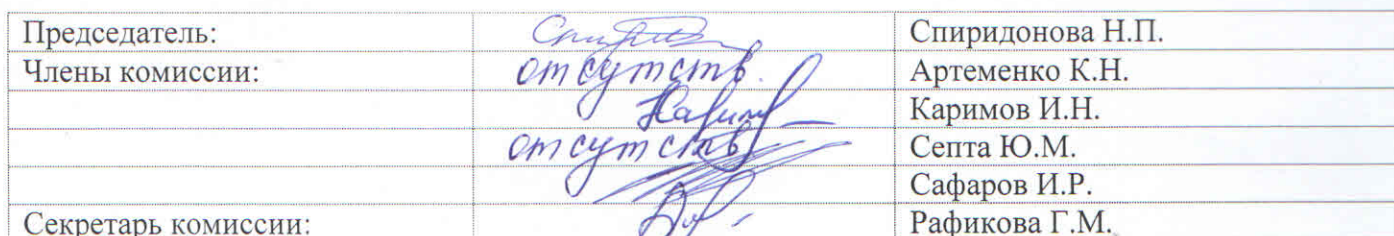 Председатель: Спиридонова Н.П.
Члены комиссии: отсутств. Артеменко К.Н.
Каримов И.Н.
отсутств Септа Ю.М.
Сафаров И.Р.
Секретарь комиссии: Рафикова Г.М.